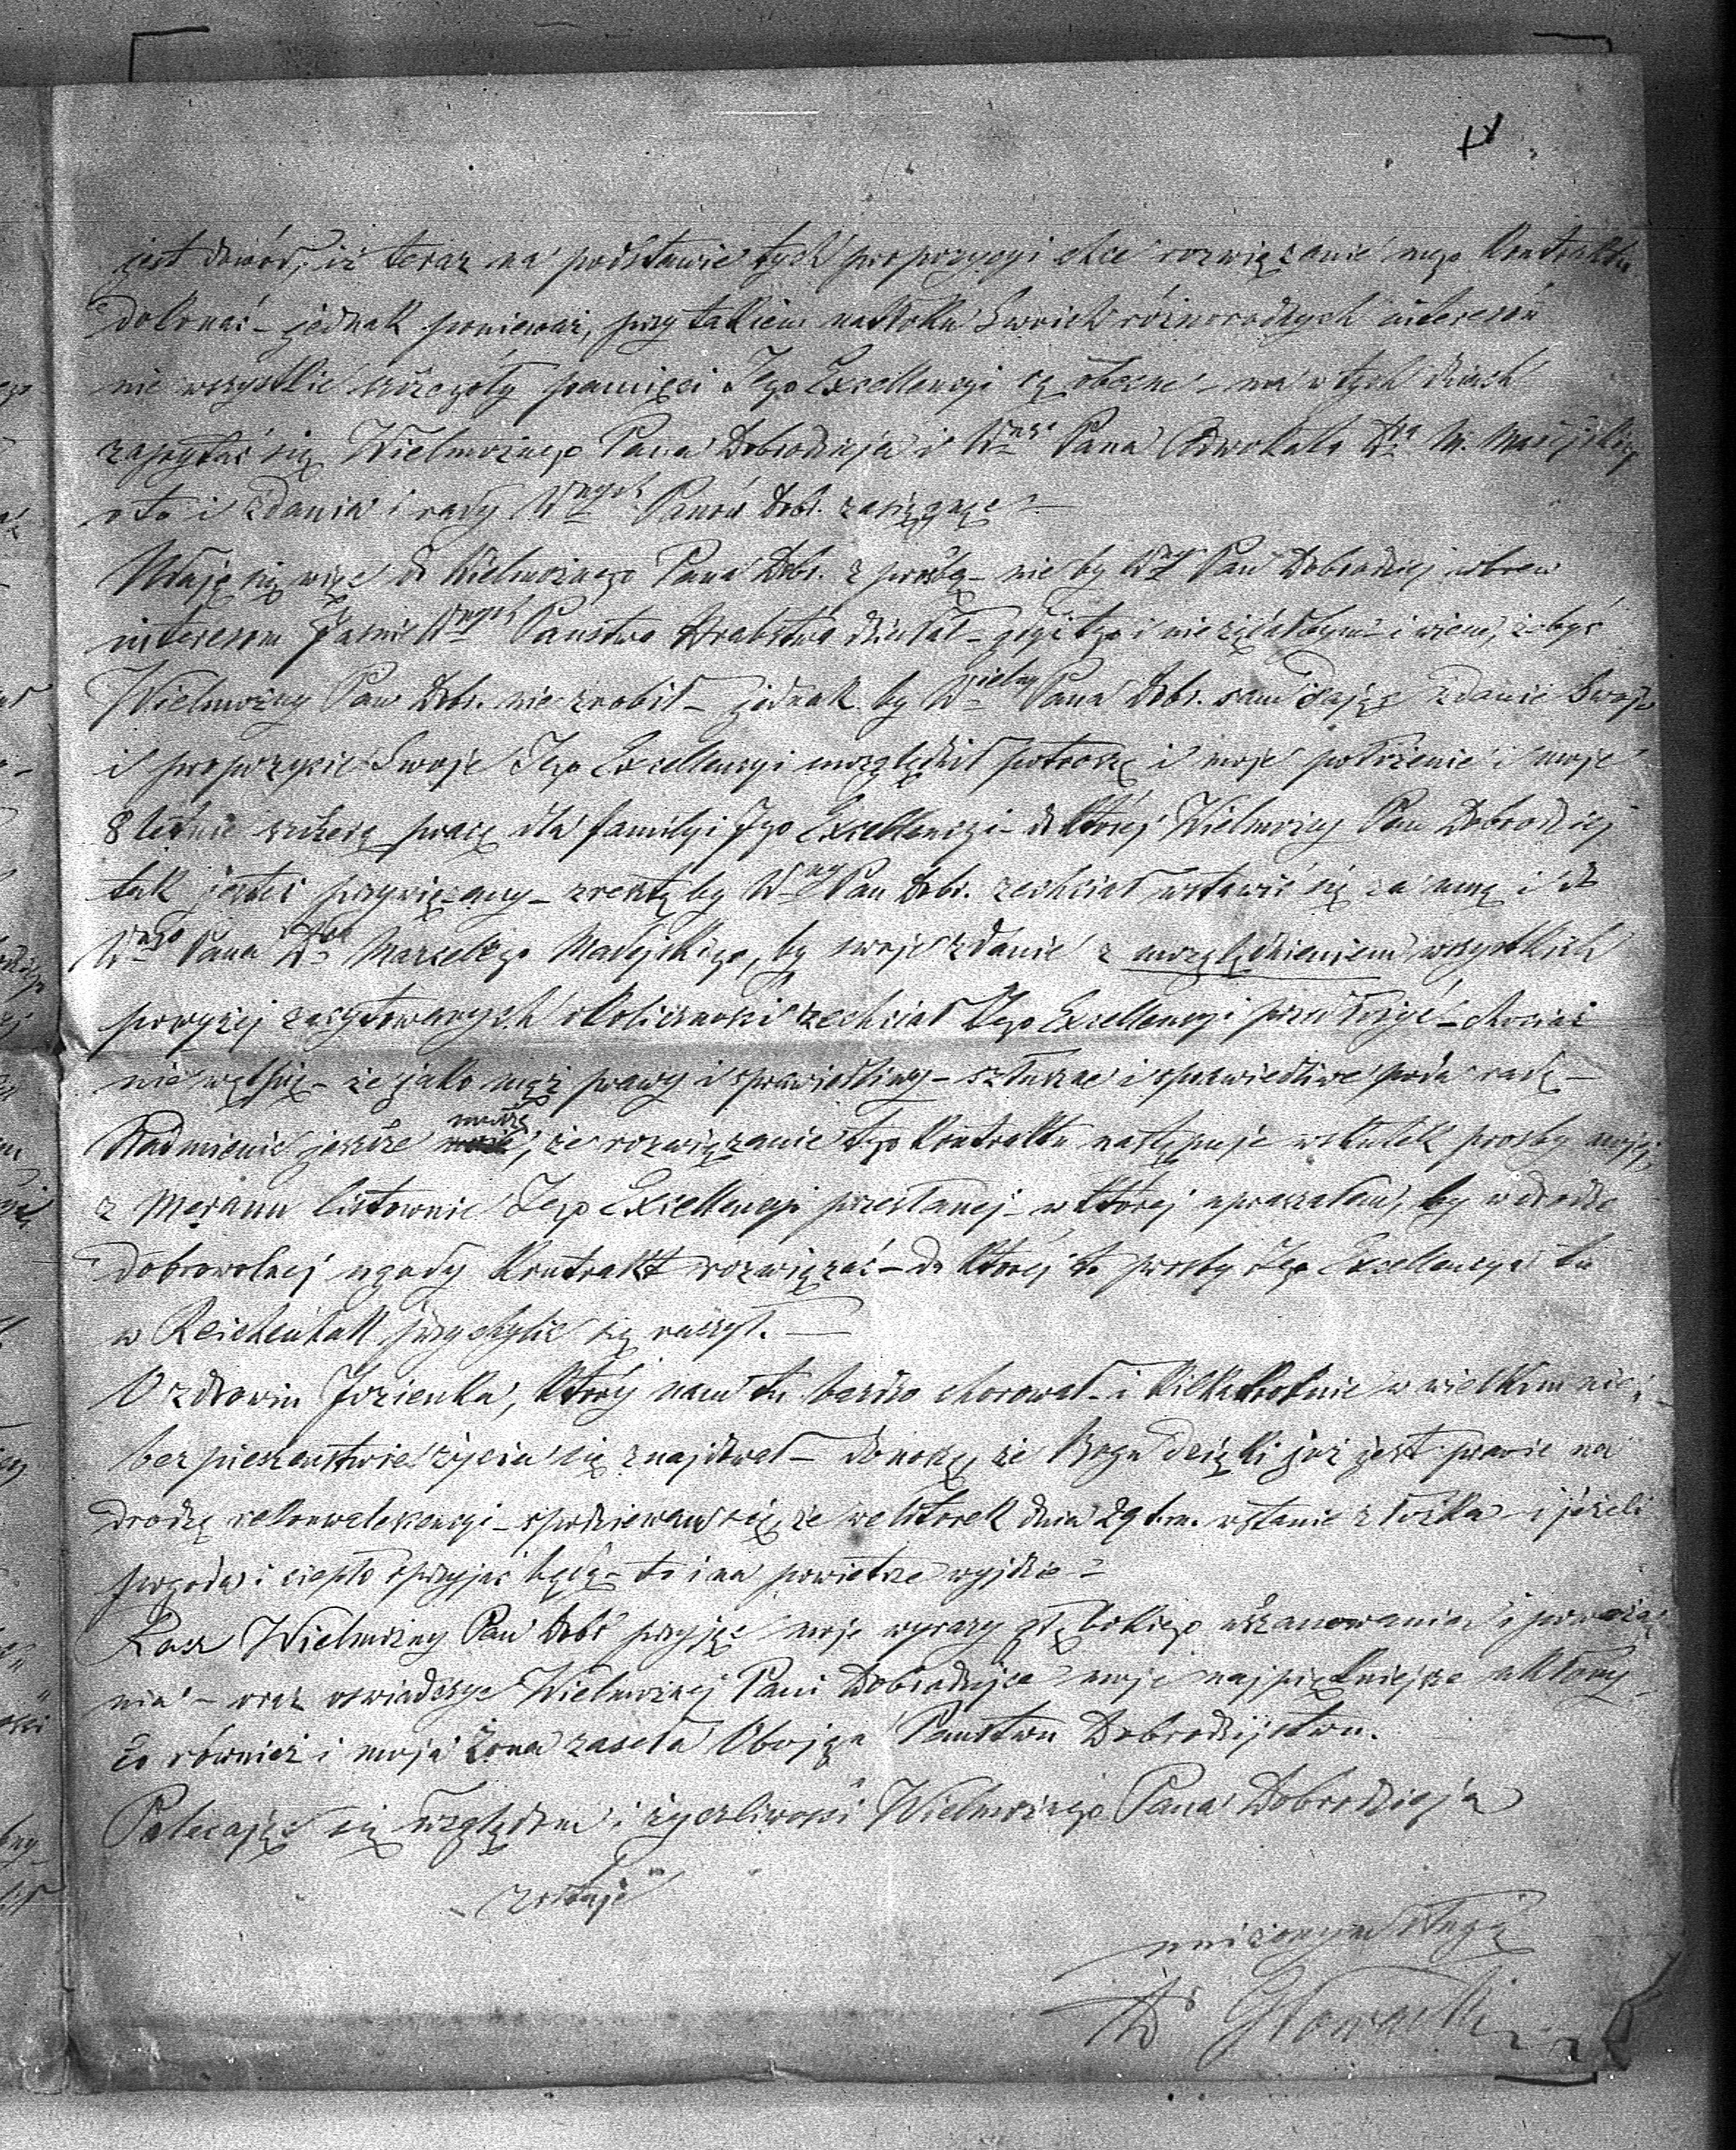 jest dowód, iż teraz na podstawie tych propozycyi chce rozwiązanie mego Kontraktu
dokonać – jednak ponieważ, przy takiem natłoku Swoich różnorodnych interesów
nie wszystkie szczegóły pamięci Jego Excellencyi są obecne – ma w tych dniach
zapytać się Wielmożnego Pana Dobrodzieja i Wgo Pana Adwokata Dra M. Madejskiego
o to i zdania i rady Wnych Panów Dobr. zasięgnąć –
Udaję się więc do Wielmożnego Pana Dobr. z prośbą – nie by Wny Pan Dobrodziej wbrew
interesom Jaśnie Wnych Państwa Hrabstwa działał – gdyż tego i nie żądałbym – i wiem, żebyś
Wielmożny Pan Dobr. nie zrobił – jednak by Wielmny Pana Dobr. sam dając zdanie Swoje
i propozycie Swoje Jego Excellencyi uwzględnił potrosze i moje położenie i moje
8 letnie szczerą pracę dla familyi Jego Excellencyi – do której Wielmożny Pan Dobrodziej
tak jesteś przywiązany – zresztą by Wny Pan Dobr. zechciał wstawić się za mną i do
Wngo Pana Dra Marcelego Madejskiego, by swoje zdanie z uwzględnieniem wszystkich
powyżej zacytowanych okoliczności zechciał Jego Excellencyi przedłożyć – chociaż
nie wątpię – że jako mąż prawy i sprawiedliwy – słuszne i sprawiedliwe poda radę –
Nadmienić jeszcze muszę, że rozwiązanie tego Kontraktu następuje wskutek prośby mojej
z Meranu listownie Jego Excellencyi przesłanej – w której upraszałem, by w drodze
dobrowolnej ugody Kontrakt rozwiązać – do której to prośby Jego Excellencya tu
w Reichenhall przychylić się raczył. –
O zdrowiu Józienka, który nam tu bardzo chorował – i kilkakrotnie w wielkim nie-
bezpieczeństwie życia się znajdował – donoszę, że Bogu dzięki już jest prawie na
drodze rekonwalescencyi – spodziewam się, że we Wtorek dnia 29 b.m. wstanie z łóżka – i jeżeli
pogoda i ciepło sprzyjać będą – to i na powietrze wyjdzie –
Racz Wielmożny Pan Dobr przyjąć moje wyrazy głębokiego uszanowania i poważa-
nia – oraz oświadczyć Wielmożnej Pani Dobrodziejce moje najpiękniejsze ukłony –
co również i moja Żona zaseła Obojga Państwu Dobrodziejstwu.
Polecając się względom i życzliwości Wielmożnego Pana Dobrodzieja
zostaję
uniżonym sługą
Dr Głowacki